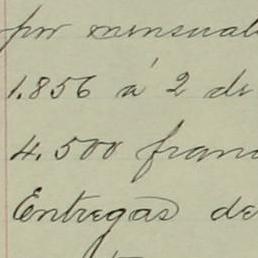 por mensual
1.856 á 2 de
4.500 franc
Entregas de